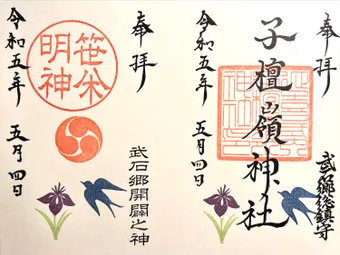 奉拝
子檀嶺神社
武石郷総鎮守
令和五年 五月四日
奉拝
笹焼
明神
武石郷開闢之神
令和五年 五月四日